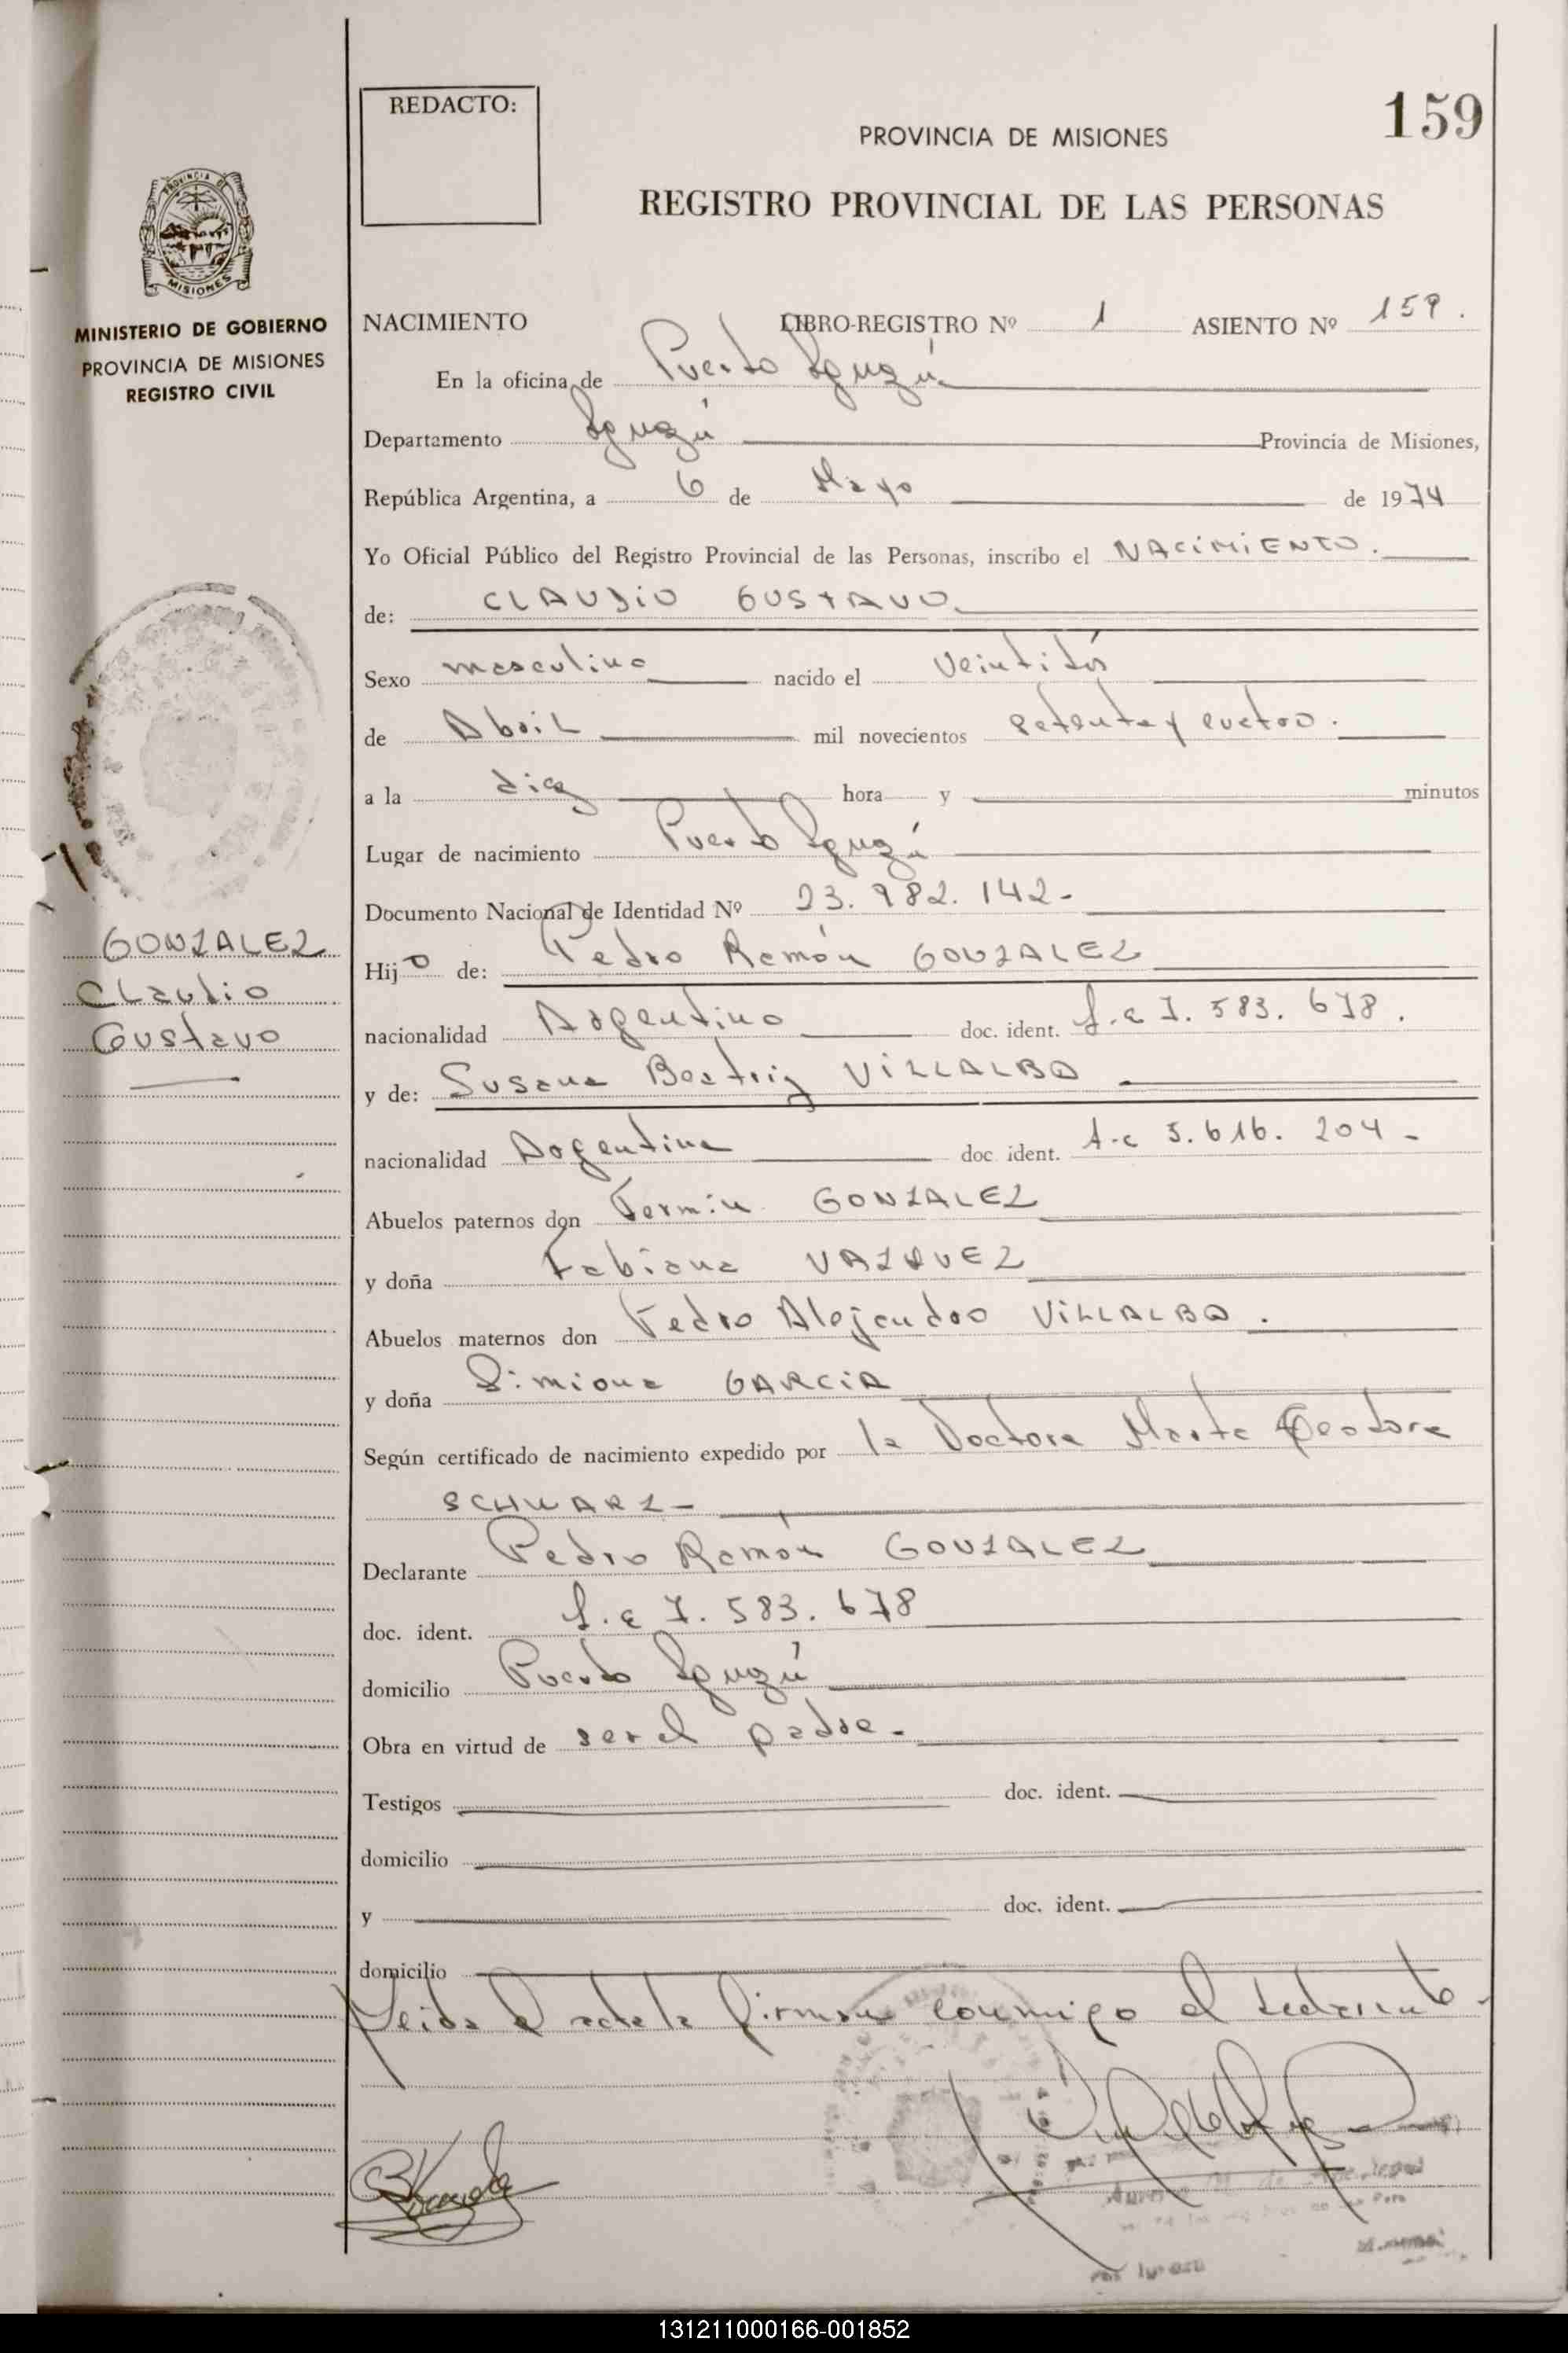 REDACTO:
159
PROVINCIA DE MISIONES
REGISTRO PROVINCIAL DE LAS PERSONAS
PROVINCIA DE
MISIONES
MINISTERIO DE GOBIERNO
PROVINCIA DE MISIONES
REGISTRO CIVIL
NACIMIENTO LIBRO-REGISTRO Nº 1 ASIENTO Nº 159.
En la oficina de Puerto Iguazú
Departamento Iguazú Provincia de Misiones,
República Argentina, a 6 de Mayo de 1974
Yo Oficial Público del Registro Provincial de las Personas, inscribo el NACIMIENTO.
de: CLAUDIO GUSTAVO.
Sexo masculino nacido el
de Abril mil novecientos setenta y cuatro.
a la diez hora y minutos
Lugar de nacimiento Puerto Iguazú
Documento Nacional de Identidad Nº 23.982.142-
GONZALEZ
Claudio
Gustavo
Hijo de: Pedro Ramón GONZALEZ
nacionalidad Argentino doc. ident. L.E 7.583.678.
y de: Susana Beatriz VILLALBA
nacionalidad Argentina doc. ident. 5.616.204-
Abuelos paternos don Fermin GONZALEZ
y doña Fabiana VAZQUEZ
Abuelos maternos don Pedro Alejandro VILLALBA.
y doña Simiona GARCIA
Según certificado de nacimiento expedido por la Doctora Marta Teodora
SCHWARZ-
Declarante Pedro Ramón GONZALEZ
doc. ident. L.E 7.583.678
domicilio Puerto Iguazú
Obra en virtud de ser el padre.-
Testigos doc. ident.
domicilio
y doc. ident.
domicilio
Leida el acta la firman conmigo el declarante-
131211000166-001852